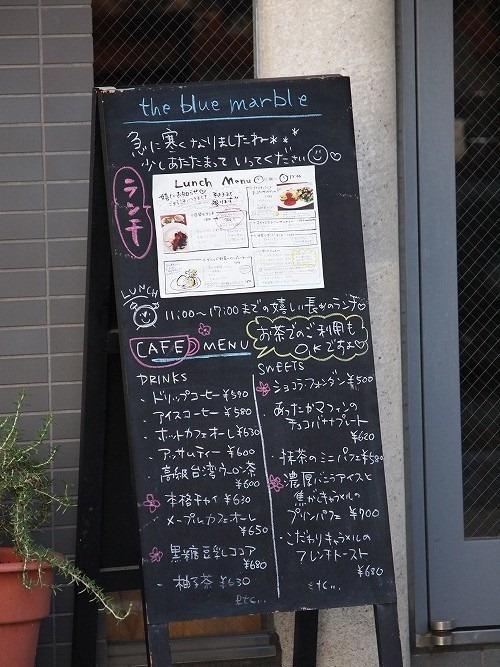 the blue marble
急に寒くなりましたね
少しあたたまっていってください
ランチ
Lunch Menu
LUNCH
11:00～17:00までの嬉しい長めのランチ♡
CAFE MENU
お茶でのご利用も
OKですよ♡
DRINKS
・ドリップコーヒー ¥590
・アイスコーヒー ¥580
・ホットカフェオーレ ¥630
・アッサムティー ¥600
・高級台湾ウーロン茶
¥600
本格チャイ ¥630
・メープルカフェオーレ
¥650
黒糖豆乳ココア
¥680
・柚子茶 ¥630
etc...
SWEETS
ショコラ・フォンダン ¥500
・あったかマフィンの
チョコバナナプレート
¥620
・抹茶のミニパフェ ¥580
濃厚バニラアイスと
焦がしキャラメルの
プリンパフェ ¥700
・こだわりキャラメルの
フレンチトースト
¥680
etc...